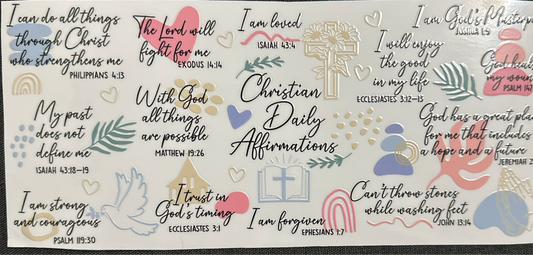 I can do all things
through Christ
who strengthens me
PHILIPPIANS 4:13
The Lord will
fight for me
EXODUS 14:14
I am loved
ISAIAH 43:4
I will enjoy
the good
in my life
ECCLESIASTES 3:12-13
I am God's
JOSHUA 1:9
God heals
my wounds
PSALM 147
My past
does not
define me
ISAIAH 43:18-19
With God
all things
are possible
MATTHEW 19:26
Christian
Daily
Affirmations
God has a great plan
for me that includes
a hope and a future
JEREMIAH 2
I am strong
and courageous
PSALM 119:30
I trust in
God's timing
ECCLESIASTES 3:1
I am forgiven
EPHESIANS 1:7
Can't throw stones
while washing feet
JOHN 13:14